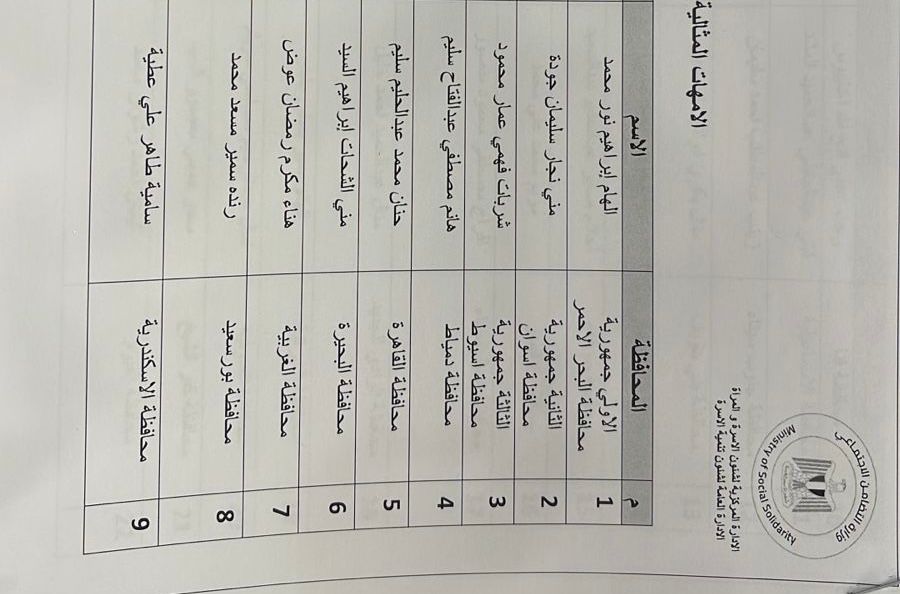 وزارة التضامن الاجتماعي
Ministry of Social Solidarity
الادارة المركزية لشئون الاسرة و المراة
الادارة العامة لشئون تنمية الاسرة
الامهات المثالية
م المحافظة الاسم
1 الاولي جمهورية الهام إبراهيم نور محمد
محافظة البحر الاحمر
2 الثانية جمهورية مني نجار سليمان جودة
محافظة اسوان
3 الثالثة جمهورية شربات فهمي عمار محمود
محافظة اسيوط
4 محافظة دمياط هانم مصطفي عبدالفتاح سليم
5 محافظة القاهرة حنان محمد عبدالحليم سليم
6 محافظة البحيرة مني الشحات إبراهيم السيد
7 محافظة الغربية هناء مكرم رمضان عوض
8 محافظة بورسعيد رنده سمير مسعد محمد
9 محافظة الاسكندرية سامية طاهر علي عطية